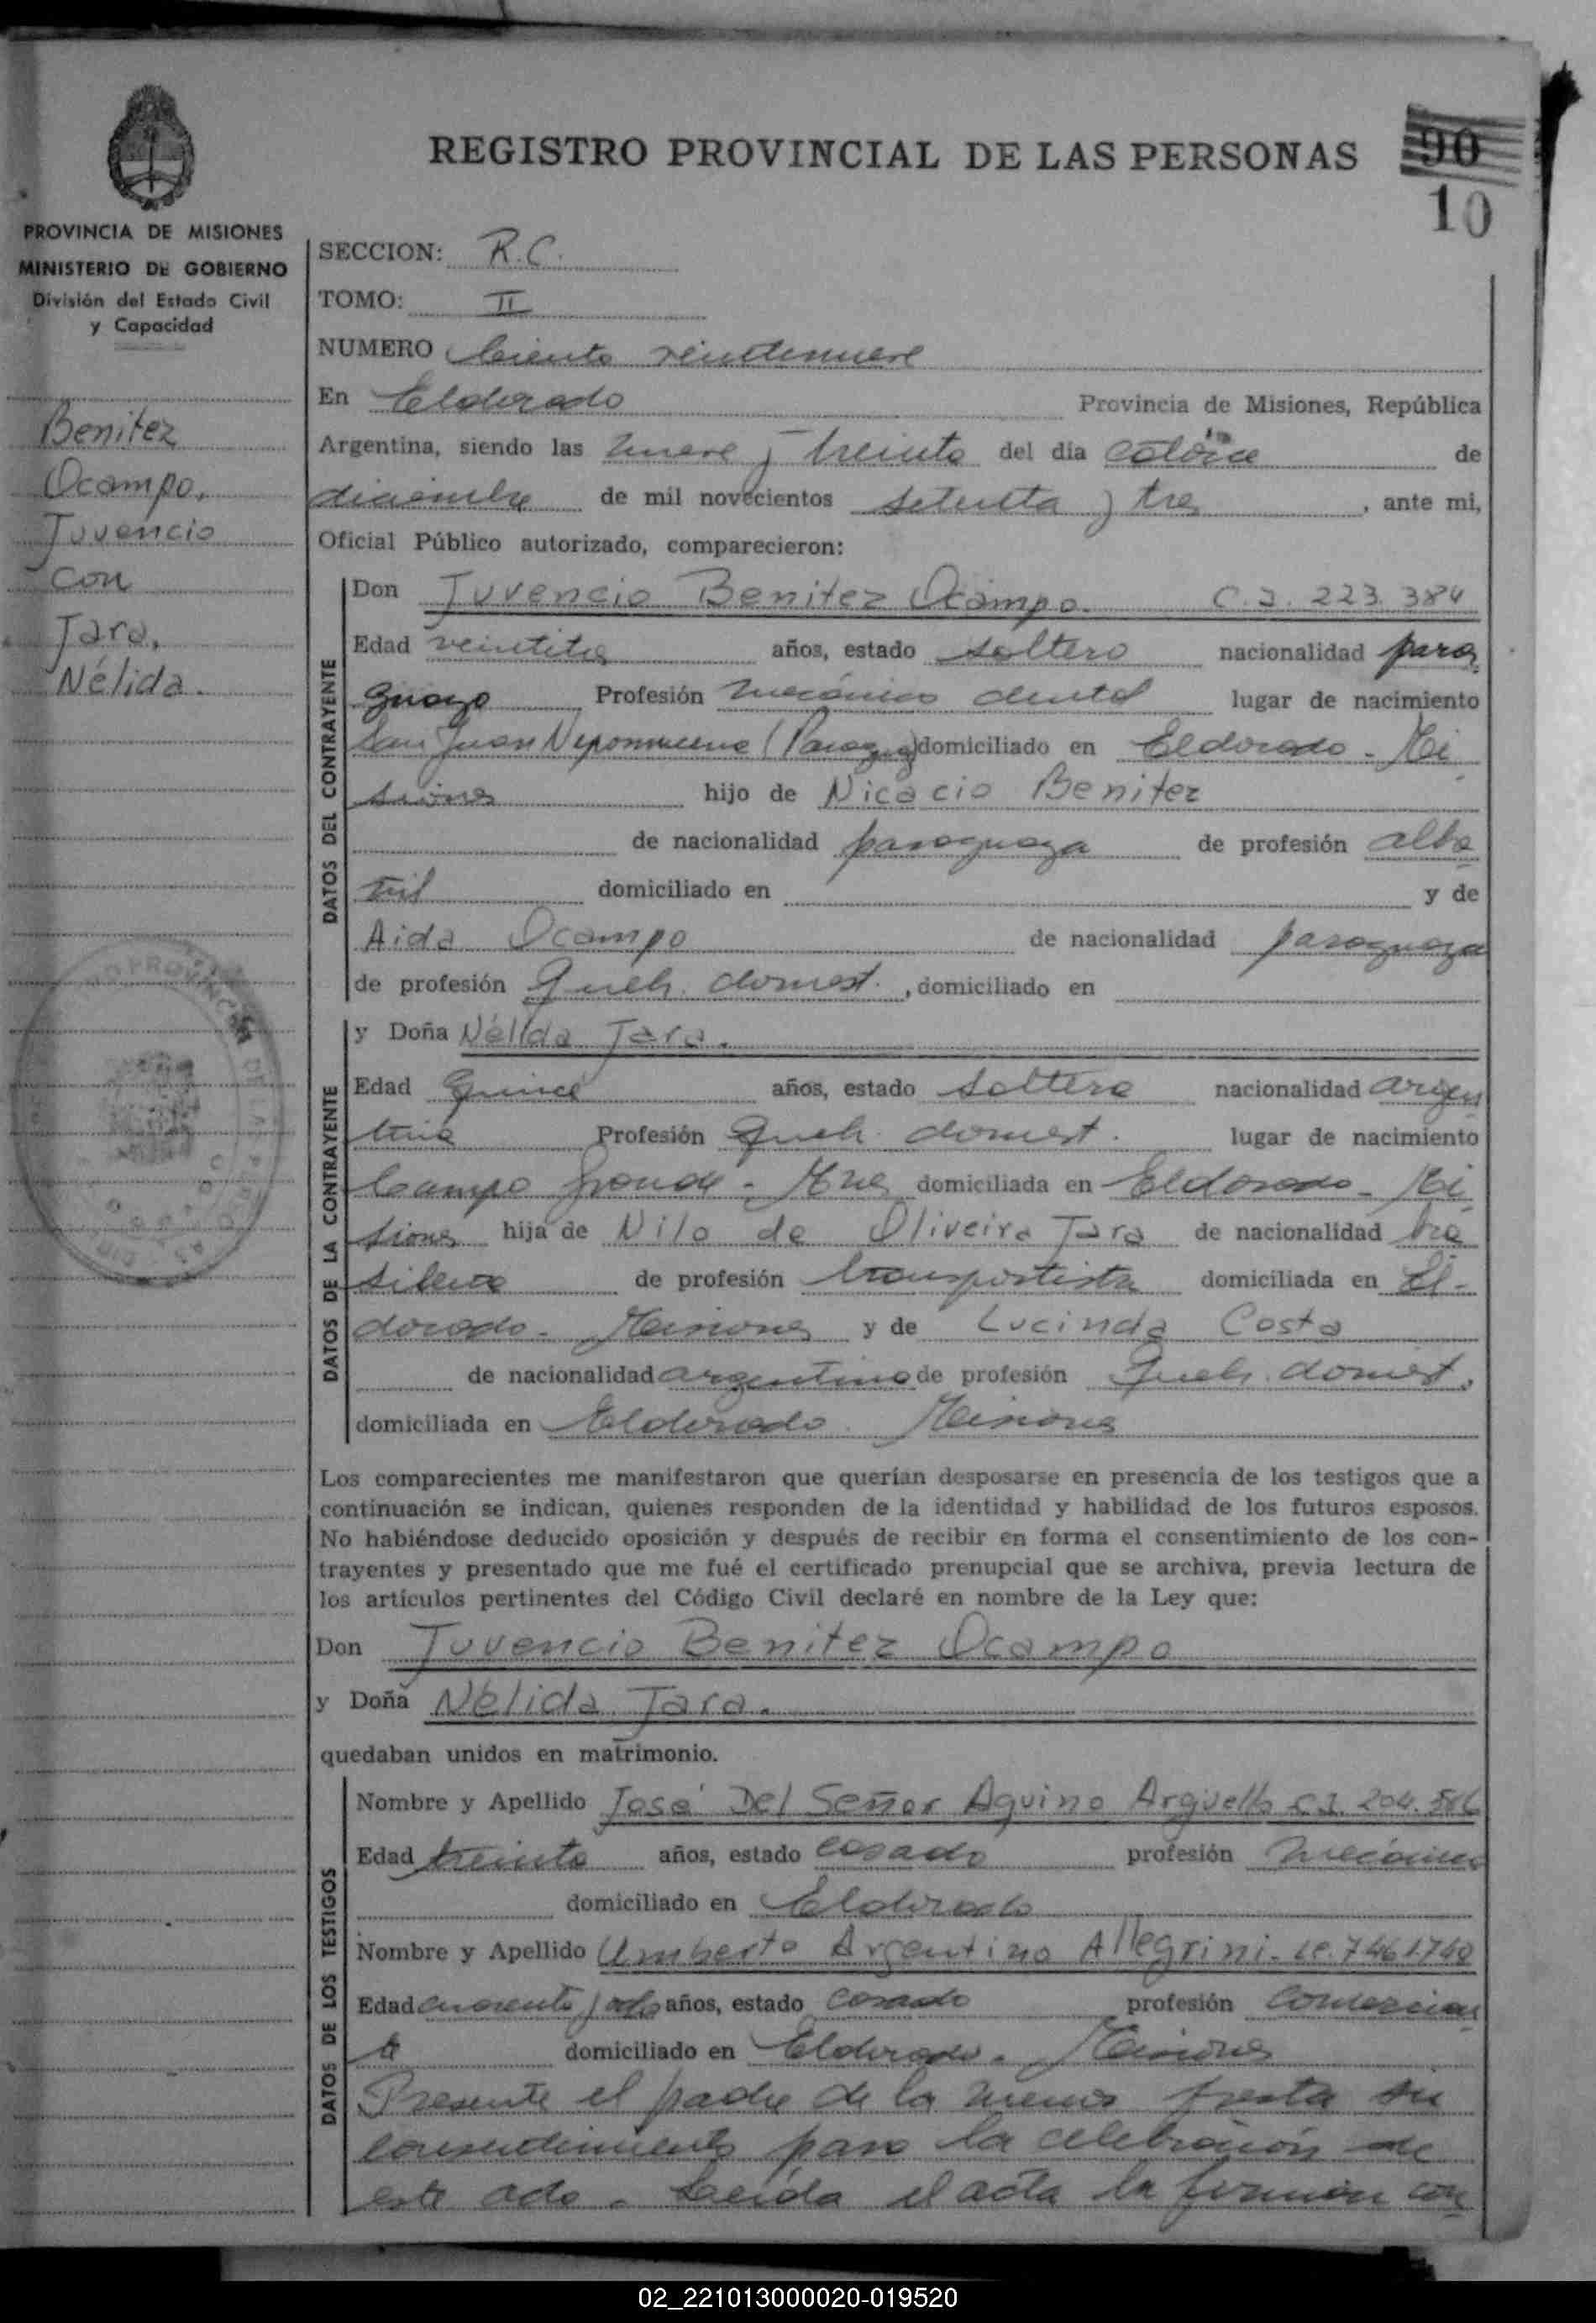 REGISTRO PROVINCIAL DE LAS PERSONAS
90
10
PROVINCIA DE MISIONES
MINISTERIO DE GOBIERNO
División del Estado Civil
y Capacidad
Benitez
Ocampo,
Juvencio
con
Jara,
Nélida.
SECCION: R.C.
TOMO: II
NUMERO Ciento veintinueve
En Eldorado Provincia de Misiones, República
Argentina, siendo las nueve y treinta del día catorce de
diciembre de mil novecientos setenta y tres, ante mi,
Oficial Público autorizado, comparecieron:
DATOS DEL CONTRAYENTE
Don Juvencio Benitez Ocampo. C.I. 223.384
Edad veintitres años, estado soltero nacionalidad para
guaya Profesión mecánico dental lugar de nacimiento
San Juan Nepomuceno (Paraguay) domiciliado en Eldorado - Mi
siones hijo de Nicacio Benitez
de nacionalidad paraguaya de profesión alba
ñil domiciliado en y de
Aida Ocampo de nacionalidad paraguaya
de profesión Queh. domest., domiciliado en
DATOS DE LA CONTRAYENTE
y Doña Nélida Jara.
Edad quince años, estado soltera nacionalidad argen
tina Profesión Queh. domest. lugar de nacimiento
Campo Grande - Mnes domiciliada en Eldorado - Mi
siones hija de Nilo de Oliveira Jara de nacionalidad bra
silera de profesión transportista domiciliada en El-
dorado - Misiones y de Lucinda Costa
de nacionalidad argentina de profesión Queh. domest.
domiciliada en Eldorado. Misiones
Los comparecientes me manifestaron que querían desposarse en presencia de los testigos que a
continuación se indican, quienes responden de la identidad y habilidad de los futuros esposos.
No habiéndose deducido oposición y después de recibir en forma el consentimiento de los con-
trayentes y presentado que me fué el certificado prenupcial que se archiva, previa lectura de
los artículos pertinentes del Código Civil declaré en nombre de la Ley que:
Don Juvencio Benitez Ocampo
y Doña Nélida Jara.
quedaban unidos en matrimonio.
DATOS DE LOS TESTIGOS
Nombre y Apellido José Del Señor Aquino Argüello C.I. 204.586
Edad treinta años, estado casado profesión mecánico
domiciliado en Eldorado
Nombre y Apellido Umberto Argentino Allegrini - LE. 7461740
Edad cuarenta y ocho años, estado casado profesión comercian
te domiciliado en Eldorado. Misiones
Presente el padre de la menor presta su
consentimiento para la celebración de
este acto. Leída el acta la firman con
02_221013000020-019520